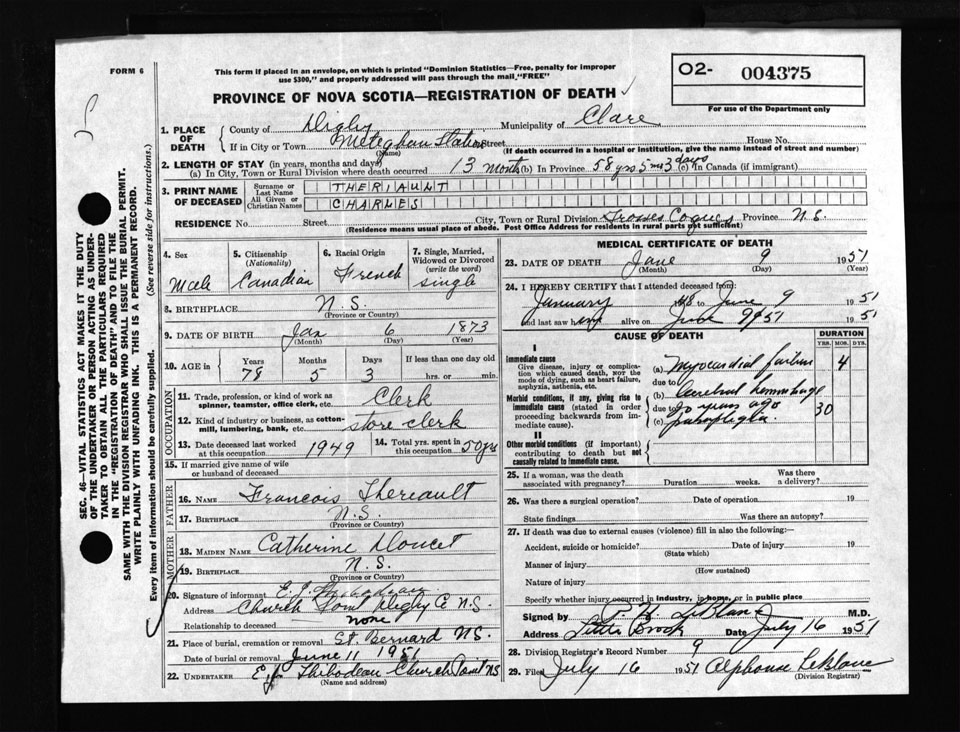 FORM 6
This form if placed in an envelope, on which is printed "Dominion Statistics—Free, penalty for improper
use $300," and properly addressed will pass through the mail, "FREE"
PROVINCE OF NOVA SCOTIA—REGISTRATION OF DEATH ✓
O2- 004375
For use of the Department only
1. PLACE OF DEATH County of Digby Municipality of Clare
If in City or Town Meteghan Station Street House No.
(Name) (If death occurred in a hospital or institution, give the name instead of street and number)
2. LENGTH OF STAY (in years, months and days)
(a) In City, Town or Rural Division where death occurred 13 months (b) In Province 58 yrs 5 m 3 days (c) In Canada (if immigrant)
3. PRINT NAME OF DECEASED Surname or Last Name THERIAULT
All Given or Christian Names CHARLES
RESIDENCE No. Street City, Town or Rural Division Grosses Coques Province N.S.
(Residence means usual place of abode. Post Office Address for residents in rural parts not sufficient)
4. Sex Male
5. Citizenship (Nationality) Canadian
6. Racial Origin French
7. Single, Married, Widowed or Divorced (write the word) single
8. BIRTHPLACE N.S.
(Province or Country)
9. DATE OF BIRTH Jan 6 1873
(Month) (Day) (Year)
10. AGE in Years Months Days If less than one day old
78 5 3 hrs. or min.
OCCUPATION
11. Trade, profession, or kind of work as spinner, teamster, office clerk, etc. Clerk
12. Kind of industry or business, as cotton-mill, lumbering, bank, etc. store clerk
13. Date deceased last worked at this occupation 1949
14. Total yrs. spent in this occupation 50 yrs
15. If married give name of wife or husband of deceased
FATHER
16. NAME Francois Theriault
17. BIRTHPLACE N.S.
(Province or Country)
MOTHER
18. MAIDEN NAME Catherine Doucet
19. BIRTHPLACE N.S.
(Province or Country)
20. Signature of informant E. J. Thibodeau
Address Church Point Digby Co N.S.
Relationship to deceased none
21. Place of burial, cremation or removal St. Bernard N.S.
Date of burial or removal June 11 1951
22. UNDERTAKER E J Thibodeau Church Point NS
(Name and address)
MEDICAL CERTIFICATE OF DEATH
23. DATE OF DEATH June 9 1951
(Month) (Day) (Year)
24. I HEREBY CERTIFY that I attended deceased from:
January to June 9 1951
and last saw him alive on June 9 51 1951
CAUSE OF DEATH
DURATION
YRS. MOS. DYS.
I
Immediate cause
Give disease, injury or complication which caused death, NOT the mode of dying, such as heart failure, asphyxia, asthenia, etc.
(a) Myocardial failure 4
due to
Morbid conditions, if any, giving rise to immediate cause (stated in order proceeding backwards from immediate cause).
(b) Cerebral hemorrhage
due to 30 years ago 30
(c) paraplegia
II
Other morbid conditions (if important) contributing to death but not causally related to immediate cause.
25. If a woman, was the death associated with pregnancy? Duration weeks. Was there a delivery?
26. Was there a surgical operation? Date of operation 19
State findings Was there an autopsy?
27. If death was due to external causes (violence) fill in also the following:—
Accident, suicide or homicide? Date of injury 19
(State which)
Manner of injury
(How sustained)
Nature of injury
Specify whether injury occurred in industry, in home, or in public place
Signed by P. H. LeBlanc M.D.
Address Little Brook Date July 16 1951
28. Division Registrar's Record Number 9
29. Filed July 16 1951 Alphonse LeBlanc
(Division Registrar)
SEC. 46—VITAL STATISTICS ACT MAKES IT THE DUTY
OF THE UNDERTAKER OR PERSON ACTING AS UNDER-
TAKER TO OBTAIN ALL THE PARTICULARS REQUIRED
IN THE "REGISTRATION OF DEATH" AND TO FILE THE
SAME WITH THE DIVISION REGISTRAR WHO SHALL ISSUE THE BURIAL PERMIT.
WRITE PLAINLY WITH UNFADING INK. THIS IS A PERMANENT RECORD.
Every item of information should be carefully supplied. (See reverse side for instructions.)